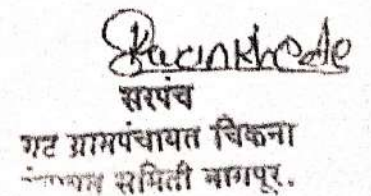 सरपंच
गट ग्रामपंचायत चिकना
समिती नागपूर.